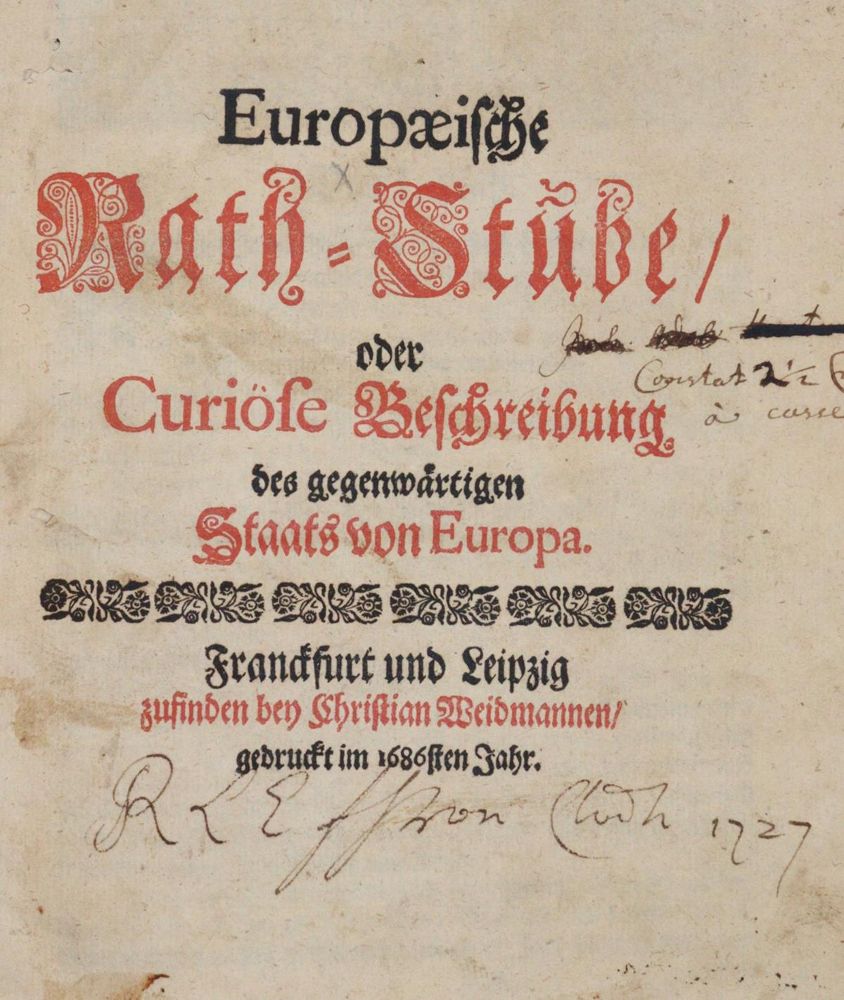 Europæische
Rath-Stube/
oder
Curiöſe Beſchreibung
des gegenwärtigen
Staats von Europa.
Constat 2½
à
Franckfurt und Leipzig
zufinden bey Chriſtian Weidmannen/
gedruckt im 1686ſten Jahr.
R L E von 1727